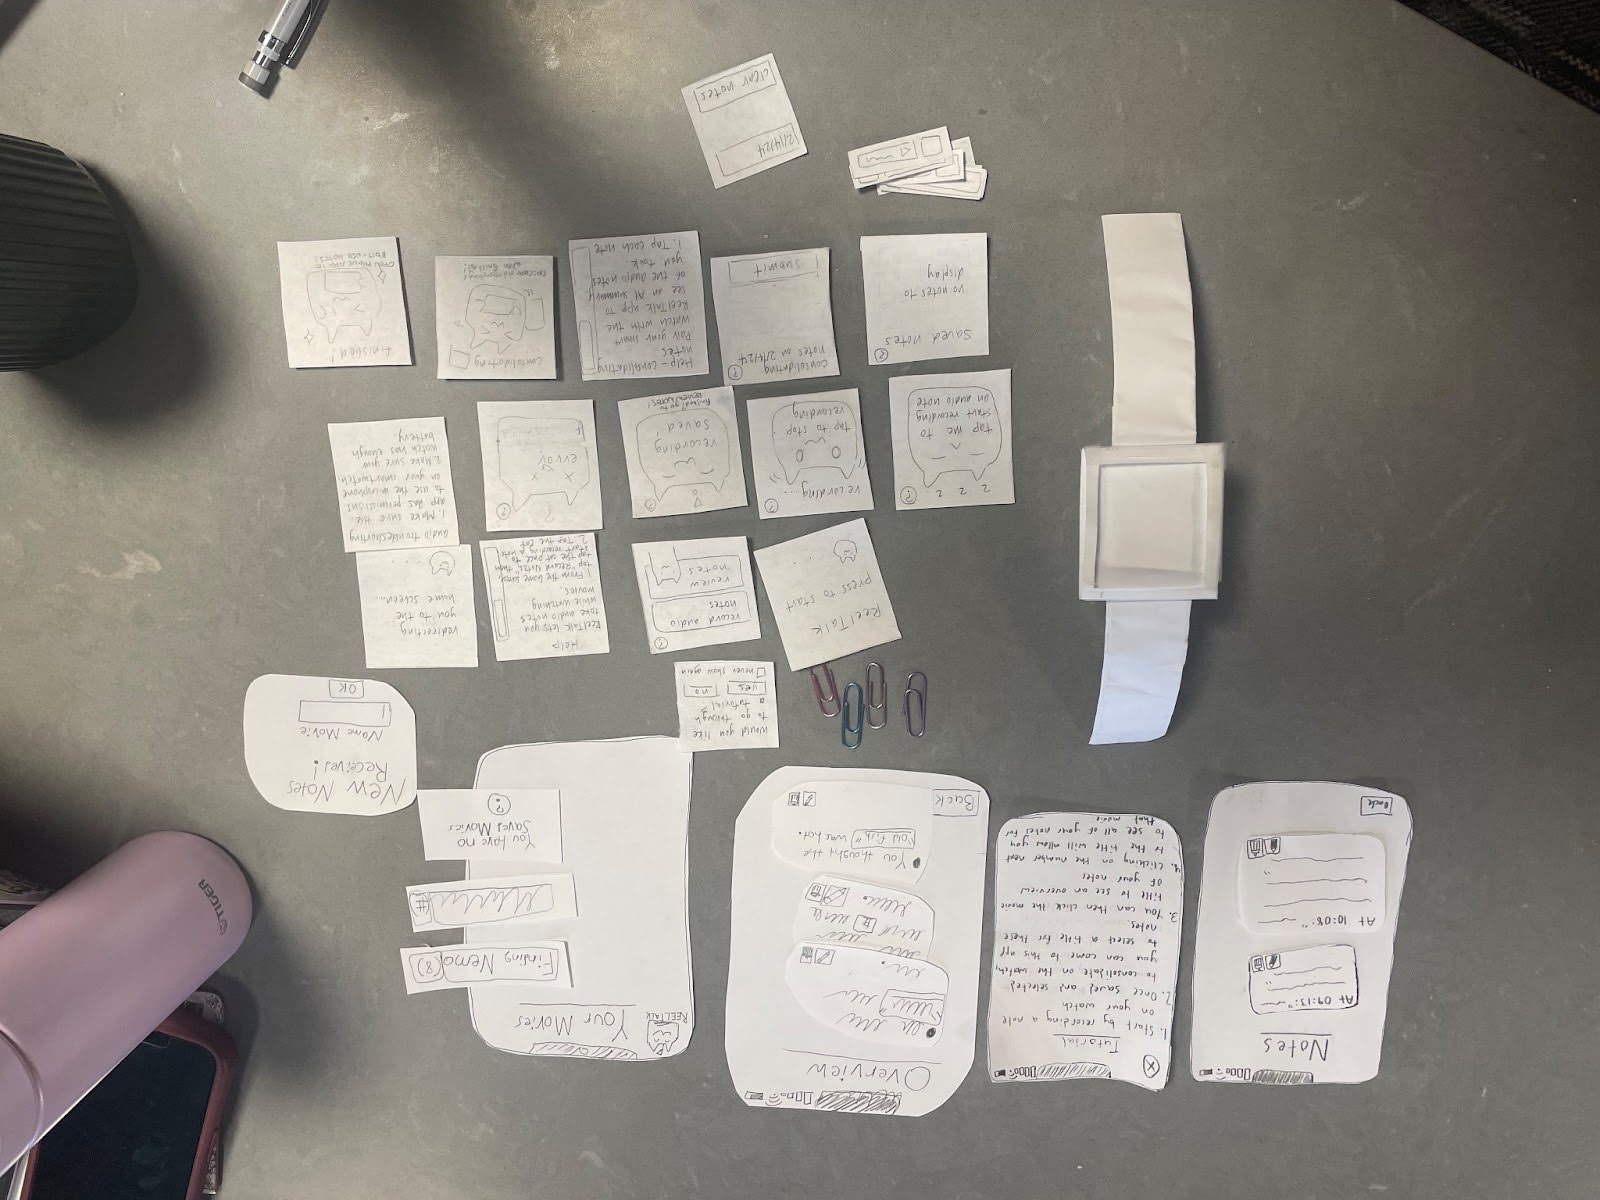 Notes
At 09:13:"
At 10:08:"
Back
X
Tutorial
1. Start by recording a note
on your watch
2. Once saved and selected
to consolidate on the watch,
you can come to this app
to select a title for these
notes.
3. You can then click the movie
title to see an overview
of your notes
4. Clicking on the number next
to the title will allow you
to see all of your notes for
that movie
Overview
You thought the
"old fish" was hot.
Back
REELTALK
Your Movies
Finding Nemo (8)
#
You have no
Saved Movies
?
New Notes
Received!
Name Movie
OK
would you like
to go through
a tutorial?
yes
no
never show again
ReelTalk
press to start
?
record audio
notes
review
notes
Help
ReelTalk lets you
take audio notes
while watching
movies.
1. From the home screen,
tap "Record Notes," then
tap the cat once to
start recording a note
2. Tap the cat
redirecting
you to the
home screen...
audio troubleshooting
1. Make sure the
app has permissions
to use the microphone
on your smartwatch.
2. Make sure your
watch has enough
battery.
z z z
?
tap me to
start recording
an audio note
recording...
?
tap to stop
recording
?
recording
saved!
finished? go to
REVIEW NOTES!
?
?
x x
error
Saved notes
no notes to
display
consolidating
notes on 2/14/24
?
submit
Help - consolidating
notes
Pair your smart
watch with the
ReelTalk app to
see an AI summary
of the audio notes
you took.
1. Tap each note
consolidating
finished!
OPEN PHONE APP TO
EDIT + USE NOTES!
2/14/24
clear notes